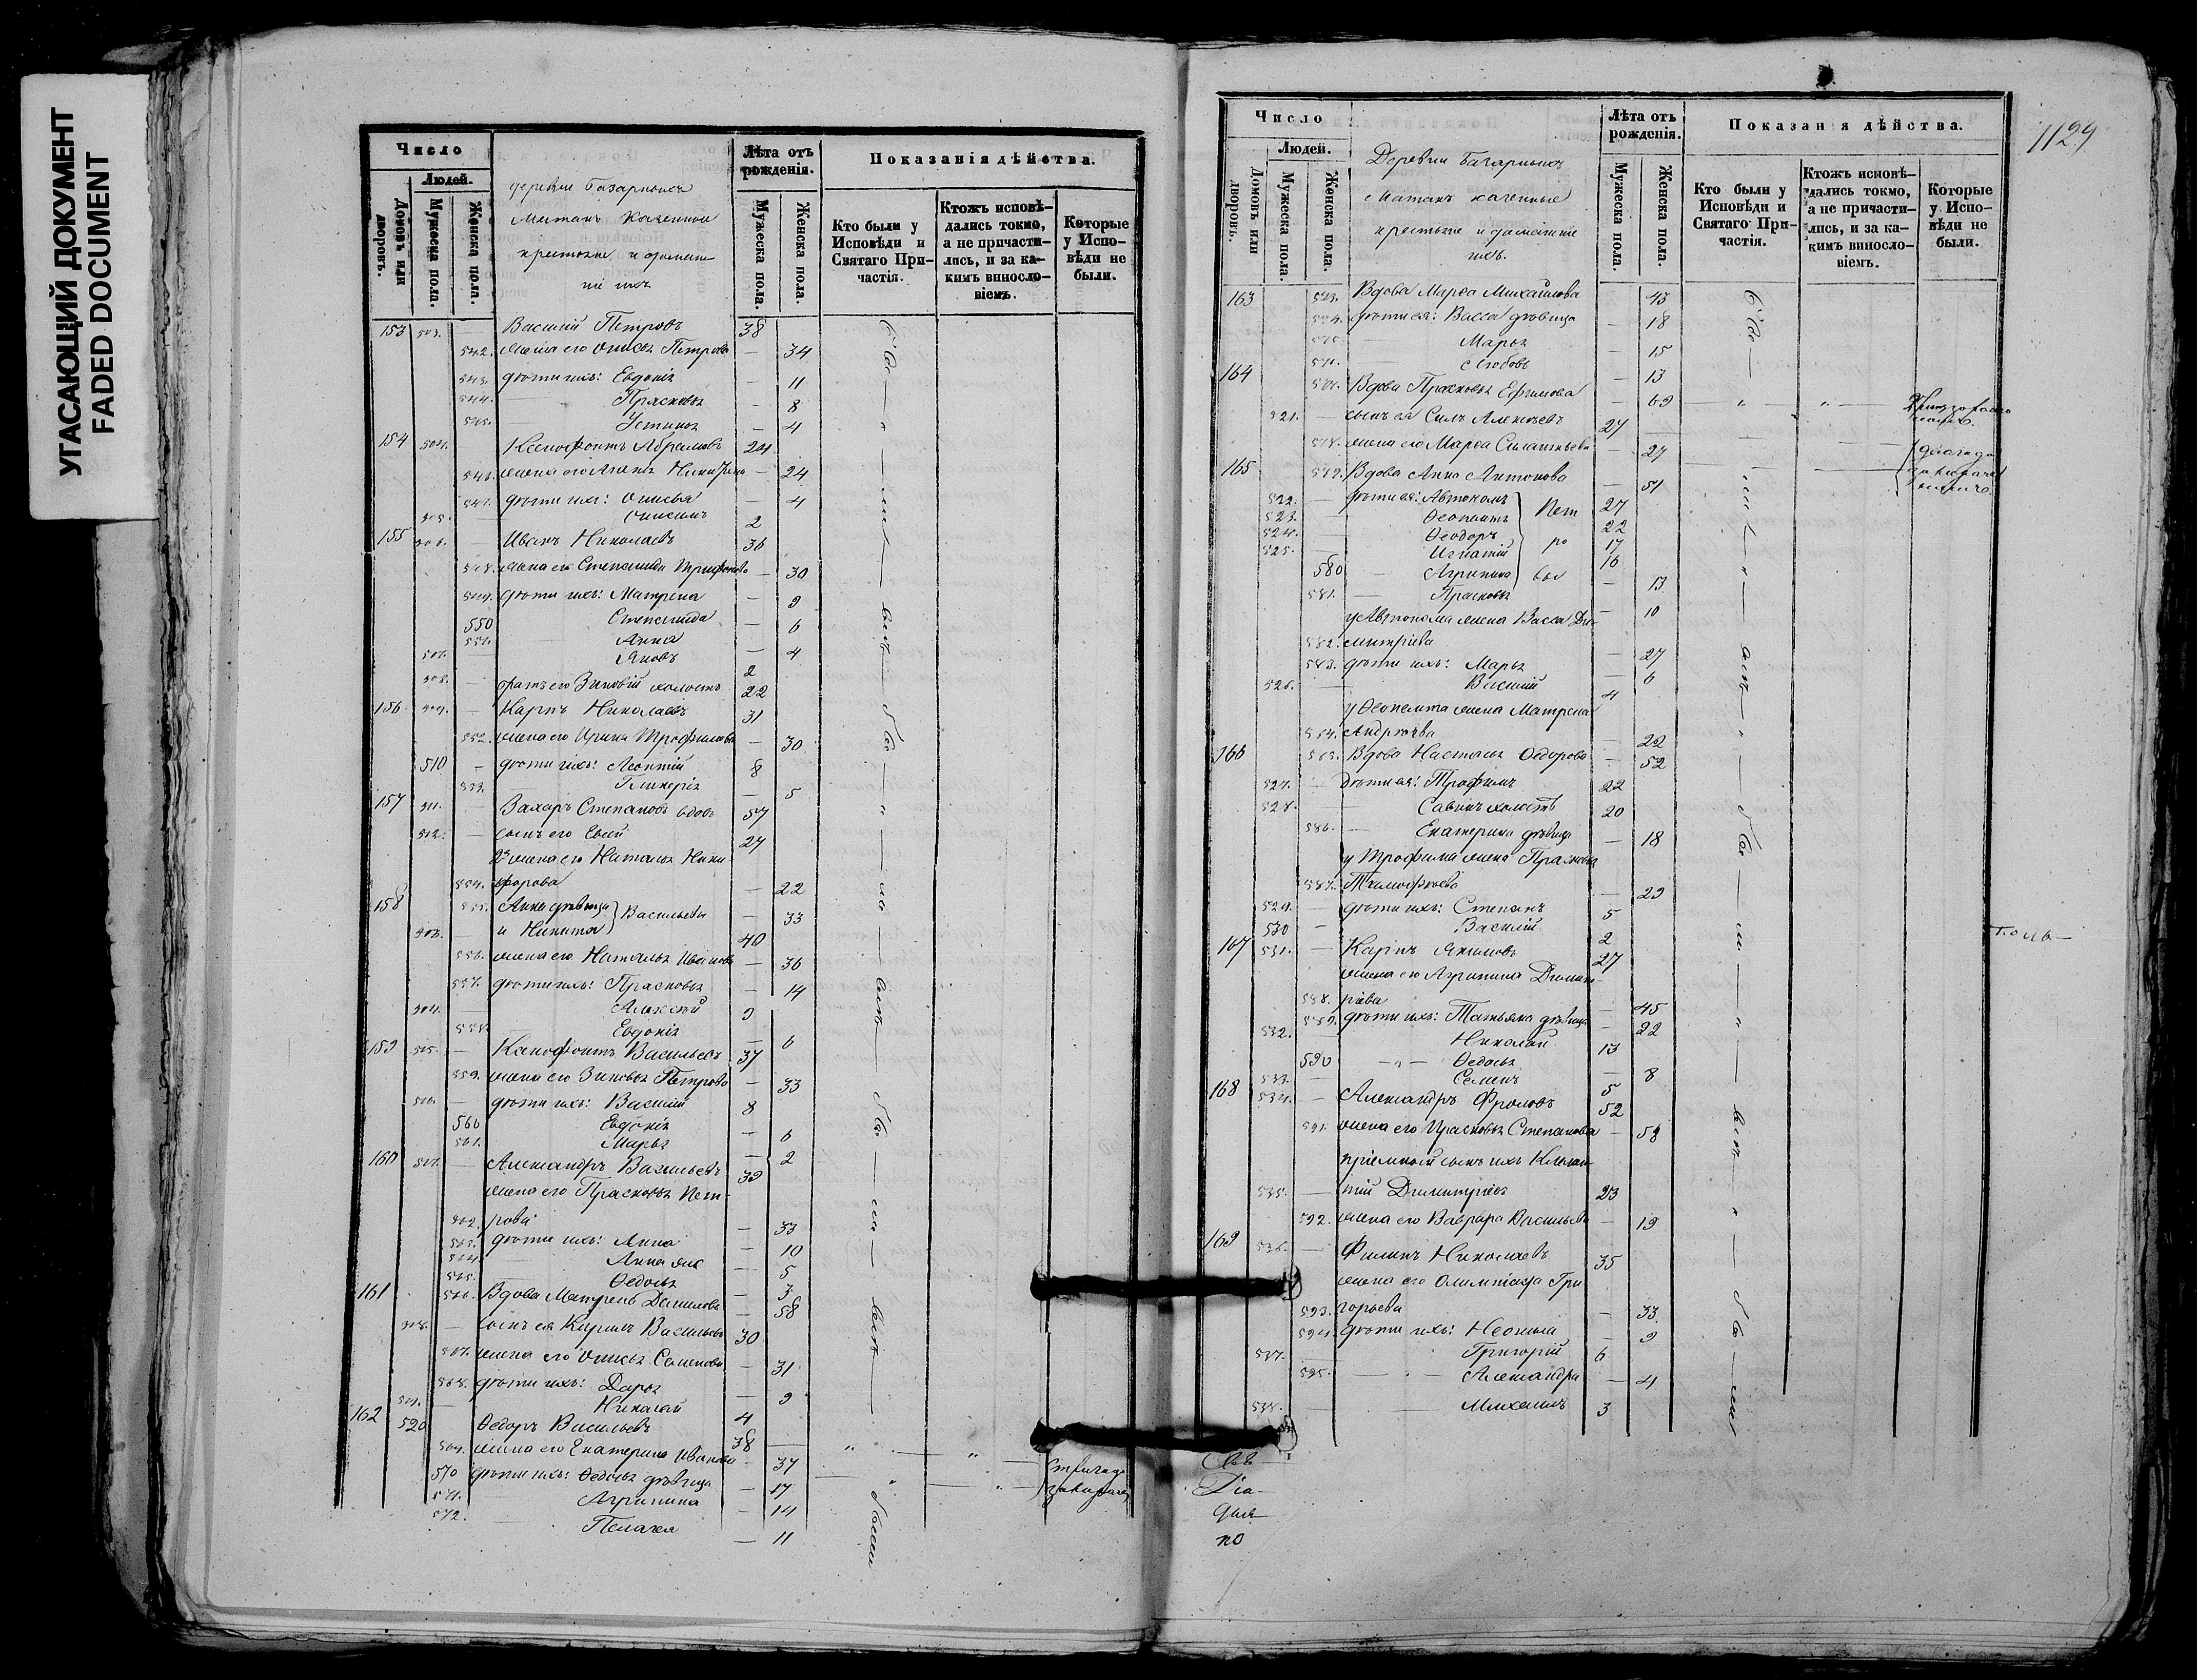 УГАСАЮЩИЙ ДОКУМЕНТ
FADED DOCUMENT
Число
Людей.
Домовъ или дворовъ.
Мужеска пола.
Женска пола.
деревни Базарныхъ
Матакъ казенныи
крестьяне и домаш-
ніе ихъ
Лѣта отъ рожденія.
Мужеска пола.
Женска пола.
Показанія дѣйства.
Кто были у Исповѣди и Святаго При-частія.
Ктожъ исповѣ-дались токмо, а не причасти-лись, и за ка-кимъ виносло-віемъ.
Которые у Испо-вѣди не были.
153 503. — Василій Петровъ 38
542. жена его Онисья Петрова — 34
543. дѣти ихъ: Евдокія — 11
544. — Прасковья — 8
545. Устинья — 4
154 504. Ксенофонтъ Абрамовъ 24
546. жена его — 24
547. дѣти ихъ: Онисья — 4
505. — Онисимъ 2
155 506. — Иванъ Николаевъ 36
548. жена его Степанида Трифонова — 30
549. дѣти ихъ: Матрена — 9
550 Степанида — 6
551. Анна — 4
507. — Яковъ 2
508. — братъ его Зиновій холостъ 22
156 509. — Карпъ Николаевъ 31
552. жена его Ирина Трофимова — 30
510 — дѣти ихъ: Леонтій 8
553. Гликерія — 5
157 511. — Захаръ Степановъ вдовъ 57
512. — сынъ его Евсей 27
2я жена его Наталья Ники-
554. форова — 22
158 555. Анна дѣвица } Васильевы — 33
513. — и Никита 40
556. жена его Наталья Иванова — 36
557. дѣти ихъ: Прасковья — 14
514. — Алексѣй 9
558. Евдокія — 6
159 515. — Ксенофонтъ Васильевъ 37
559. жена его Зиновья Петрова — 33
516. — дѣти ихъ: Василій 8
560 Евдокія — 6
561. Марья — 2
160 517. — Александръ Васильевъ 39
жена его Прасковья Пет-
562. рова — 33
563. дѣти ихъ: Анна — 10
564. — Анна же — 5
565. — Ѳедосья — 3
161 566. Вдова Матрена Данилова — 58
518. — сынъ ея Кирилъ Васильевъ 30
567. жена его Онисья Семенова — 31
568. дѣти ихъ: Дарья — 9
519. — Николай 4
162 520 Ѳедоръ Васильевъ 38
569. жена его Екатерина Иванова — 37
570 дѣти ихъ: Ѳедосья дѣвица — 17
571. Агрипина — 14
572. — Пелагея — 11
1129
Число
Людей.
Домовъ или дворовъ.
Мужеска пола.
Женска пола.
Деревни Базарныхъ
Матакъ казенные
крестьяне и домашніе
ихъ.
Лѣта отъ рожденія.
Мужеска пола.
Женска пола.
Показан я дѣйства.
Кто были у Исповѣди и Святаго При-частія.
Ктожъ исповѣ-дались токмо, а не причасти-лись, и за ка-кимъ виносло-віемъ.
Которые у Испо-вѣди не были.
163 573. Вдова Марѳа Михайлова 43
574. дѣти ея: Васса дѣвица — 18
575. Марья — 15
576. Любовь — 13
164 577. Вдова Прасковья Ефимова — 69
521. — сынъ ея Сила Алексѣевъ 27
578. жена его Марѳа — 27
165 579. Вдова Анна Антонова — 51
522. — дѣти ея: Автономъ 27
523. — Ѳеопемптъ 22
524. — Ѳеодоръ 17
525. — Игнатій 16
580 — Агрипина — 13
581. — Прасковья — 10
Пет
ро
вы
у Автонома жена Васса Ди-
582. митріева — 27
583. дѣти ихъ: Марья — 6
526. — Василій 4
у Ѳеопемпта жена Матрена
584. Андреева — 22
166 585. Вдова Настасья Ѳедорова — 52
527. — дѣти ея: Трофимъ 22
528. — Савинъ холостъ 20
586. — Екатерина дѣвица — 18
у Трофима жена Прасковья
587. Тимофѣева — 23
529. — дѣти ихъ: Степанъ 5
530 — Василій 2
167 531. — Карпъ Якимовъ 27
жена его Агрипина Димит-
588. ріева — 45
589. дѣти ихъ: Татьяна дѣвица — 22
532. — Николай 13
590 — Ѳедосья — 8
533. — Семенъ 5
168 534. — Александръ Фроловъ 52
591. жена его Прасковья Степанова — 58
пріемной сынъ ихъ Климен-
535. — тій Димитріевъ 23
592. жена его Варвара Васильева — 19
169 536. — Филипъ Николаевъ 35
жена его Олимпіада Гри-
593. горьева — 33
594. дѣти ихъ: Неонила — 9
537. — Григорій 6
595. — Александра — 4
538. — Михаилъ 3